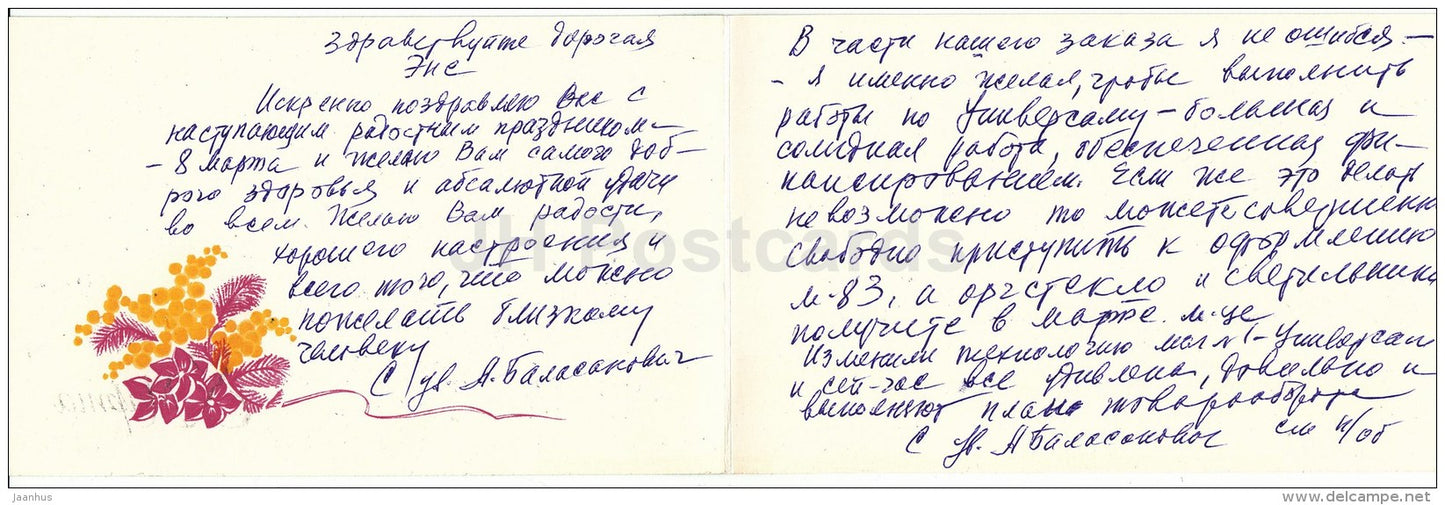 Здравствуйте дорогая
Энс
Искренно поздравляю Вас с
наступающим радостным праздником —
– 8 марта и желаю Вам самого доб-
рого здоровья и абсалютной удачи
во всем. Желаю Вам радости,
хорошего настроения и
всего того, что можно
пожелать близкому
человеку
С ув. А. Баласанович
В части нашего заказа я не ошибся —
– я именно желал, чтобы выполнить
работы по Универсаму – большая и
солидная работа, обеспеченная фи-
нансированием. Если же это делать
невозможно то можете совершенно
свободно приступить к оформлению
м-83, а оргстекло и светильники
получите в марте м-це
Изменили технологию маг №1 – Универсам
и сей-час все довольно и
выполняют план товарооборота
С ув. А Баласанович см н/об
JH Postcards
jaanhus
www.delcampe.net